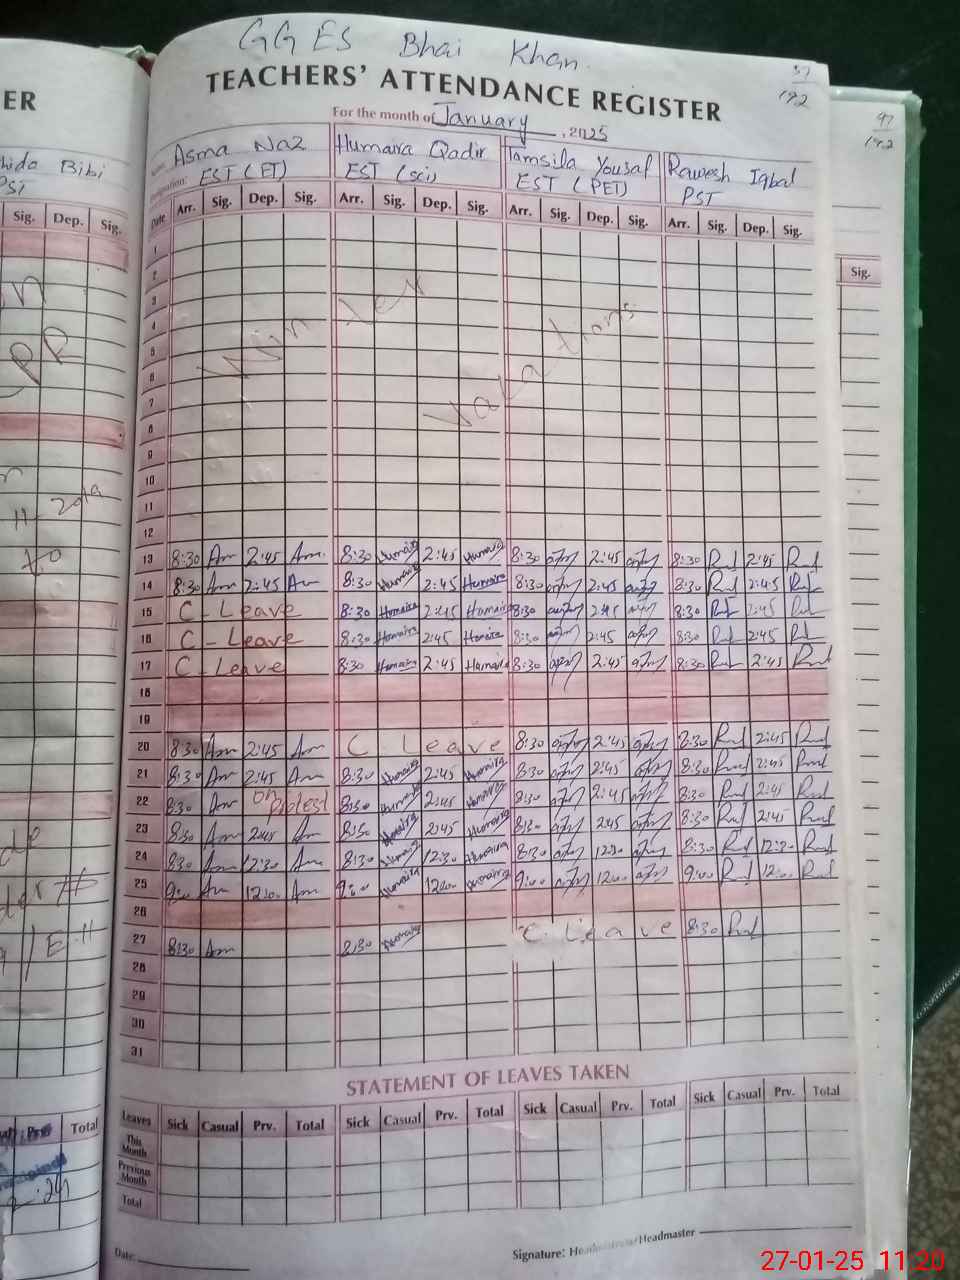 GGES Bhai Khan.
TEACHERS' ATTENDANCE REGISTER
57
192
For the month of January, 2025
Asma Naz Humaira Qadir Tamsila Yousaf Rawesh Iqbal
EST (PT) EST (sci) EST (PET) PST
Date Arr. Sig. Dep. Sig. Arr. Sig. Dep. Sig. Arr. Sig. Dep. Sig. Arr. Sig. Dep. Sig.
1
2
3
4
5
6
7
8
9
10
11
12
Winter Vacations
13 8:30 Am 2:45 Am 8:30 Humaira 2:45 Humaira 8:30 2:45 8:30 2:45
14 8:30 Am 2:45 Am 8:30 Humaira 2:45 Humaira 8:30 2:45 8:30 2:45
15 C-Leave 8:30 Humaira 2:45 Humaira 8:30 2:45 8:30 2:45
16 C-Leave 8:30 Humaira 2:45 Humaira 8:30 2:45 8:30 2:45
17 C-Leave 8:30 Humaira 2:45 Humaira 8:30 2:45 8:30 2:45
18
19
20 8:30 Am 2:45 Am C. Leave 8:30 2:45 8:30 2:45
21 8:30 Am 2:45 Am 8:30 Humaira 2:45 Humaira 8:30 2:45 8:30 2:45
22 8:30 Am on protest 8:30 Humaira 2:45 Humaira 8:30 2:45 8:30 2:45
23 8:30 Am 2:45 Am 8:30 Humaira 2:45 Humaira 8:30 2:45 8:30 2:45
24 8:30 Am 12:30 Am 8:30 Humaira 12:30 Humaira 8:30 12:30 8:30 12:30
25 9:00 Am 12:00 Am 9:00 Humaira 12:00 Humaira 9:00 12:00 9:00 12:00
26
27 8:30 Am 8:30 Humaira C. Leave 8:30
28
29
30
31
STATEMENT OF LEAVES TAKEN
Leaves Sick Casual Prv. Total Sick Casual Prv. Total Sick Casual Prv. Total Sick Casual Prv. Total
This Month
Previous Month
Total
Date:
Signature: Headmistress/Headmaster
27-01-25 11:20
ER
Bibi
Sig. Dep. Sig.
PR
11-2019
to
Total
97
192
Sig.